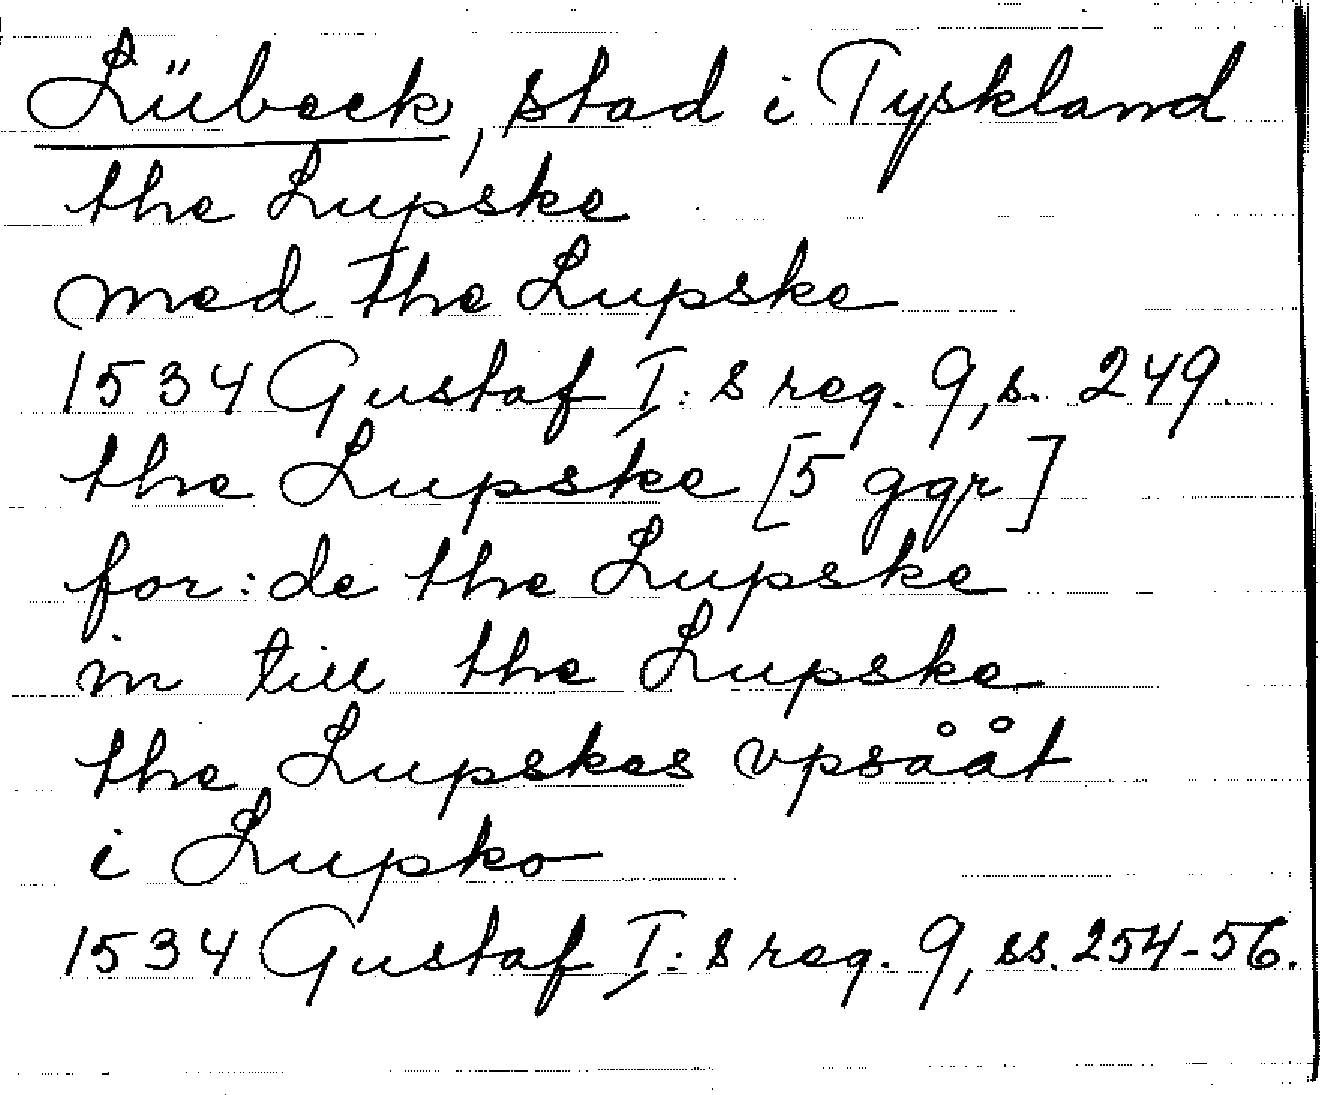 Lübeck, stad i Tyskland
the Lupske
med the Lupske
1534 Gustaf I:s reg. 9, s. 249
the Lupske [5 ggr]
for:de the Lupske
in till the Lupske
the Lupskes vpsååt
i Lupko
1534 Gustaf I:s reg. 9, ss. 254-56.